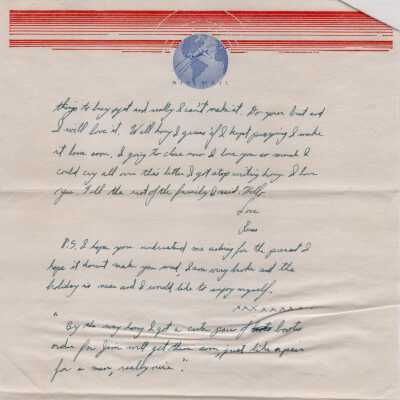 AIR MAIL
things to buy and really I can't make it. Do your best and
I will love it. Well hony I guess if I kept praying I make
it home soon. I going to close now I love you so much I
could cry all over this letter I got stop writing hony I love
you. Tell the rest of the family I said. Hello
Love
P.S. I hope you understand me asking for the present I
hope it doesn't make you mad, I am very broke and the
holiday is near and I would like to enjoy myself.
xxxxxxxxx
" By the way hony I got a cute pair of boots
order for Jim will get them soon, just like a pair
for a man, really nice".